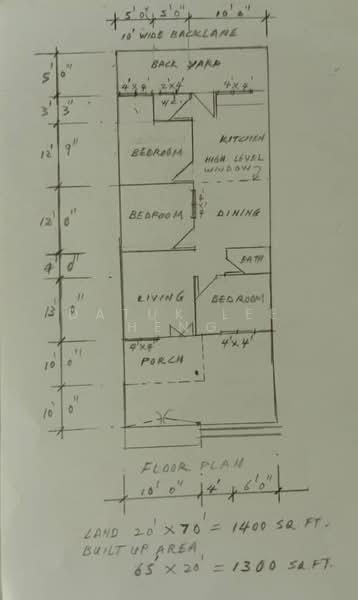 5' 0" 5' 0" 10' 0"
10' WIDE BACKLANE
BACK YARD
4'x4' 2'x4' 4'x4'
W/C
5' 0"
3' 3"
12' 9"
12' 0"
4' 0"
13' 0"
10' 0"
10' 0"
KITCHEN
BEDROOM
HIGH LEVEL
WINDOW
BEDROOM
4'x4'
DINING
BATH
LIVING
BEDROOM
DATUK LEE
HENG
4'x4' 4'x4'
PORCH
FLOOR PLAN
10' 0" 4' 6' 0"
LAND 20' x 70' = 1400 SQ FT.
BUILT UP AREA
65' x 20' = 1300 SQ.FT.